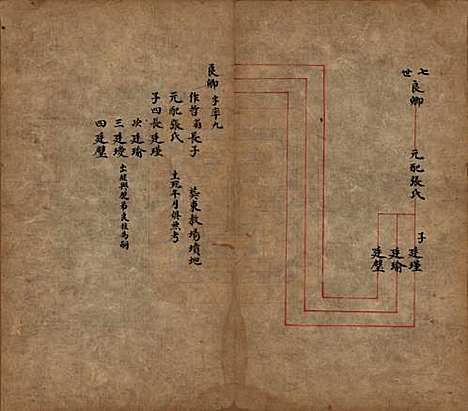 七世
良卿
元配張氏
子
廷瑾
廷瑜
廷璧
良卿 字率九
作哲翁長子
元配張氏 葬東教場墳地
子四長廷瑾 生殁年月俱無考
次廷瑜
三廷璦 出繼與堂弟良柱為嗣
四廷璧